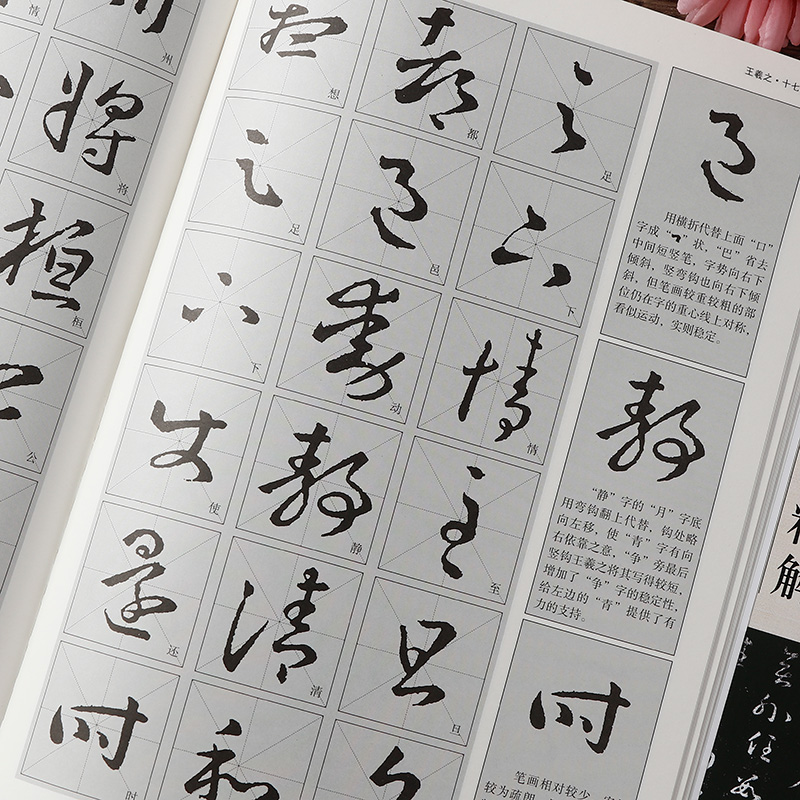 王羲之·十七
邑
用横折代替上面“口”
字成“㇕”状，“巴”省去
中间短竖笔，字势向右下
倾斜，竖弯钩也向右下倾
斜，但笔画较重较粗的部
位仍在字的重心线上对称，
看似运动，实则稳定。
静
“静”字的“月”字底
用弯钩翻上代替，钩处略
向左移，使“青”字有向
右依靠之意，“争”旁最后
竖钩王羲之将其写得较短，
增加了“争”字的稳定性，
给左边的“青”提供了有
力的支持。
时
笔画相对较少，字
较为疏朗，
足
足
下
下
情
情
至
至
旦
旦
都
都
邑
邑
動
动
静
静
清
清
和
想
想
足
足
下
下
使
使
還
还
时
时
情
州
州
将
将
桓
桓
公
公
解